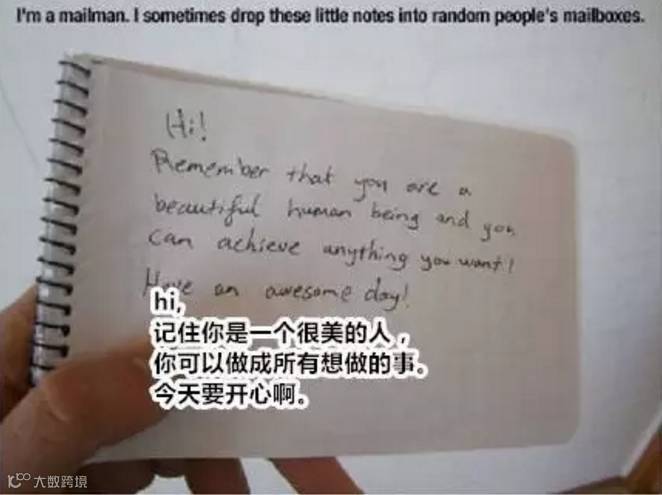 I'm a mailman. I sometimes drop these little notes into random people's mailboxes.
Hi!
Remember that you are a
beautiful human being and you
can achieve anything you want!
Have an awesome day!
hi,
记住你是一个很美的人，
你可以做成所有想做的事。
今天要开心啊。
大数跨境